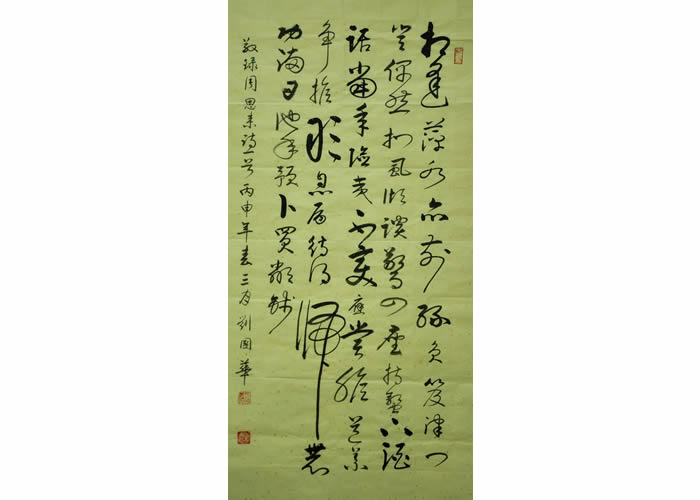 相逢萍水亦前缘负笈津门
岂偶然扪虱倾谈惊四座持螯下酒
话当年险夷不变应尝胆道义
争担敢息肩待得归农
功满日他年预卜买邻钱
敬录周恩来诗一首丙申年春三月刘国华